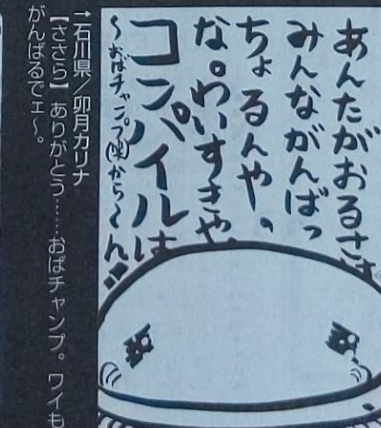 あんたがおるさ
みんながんばっ
ちょるんや。
な。わいすきや
コンパイルは
〜おばチャンプ㊙から〜ん
→石川県／卯月カリナ
【ささら】ありがとう……おばチャンプ。ワイも
がんばるでェ〜。